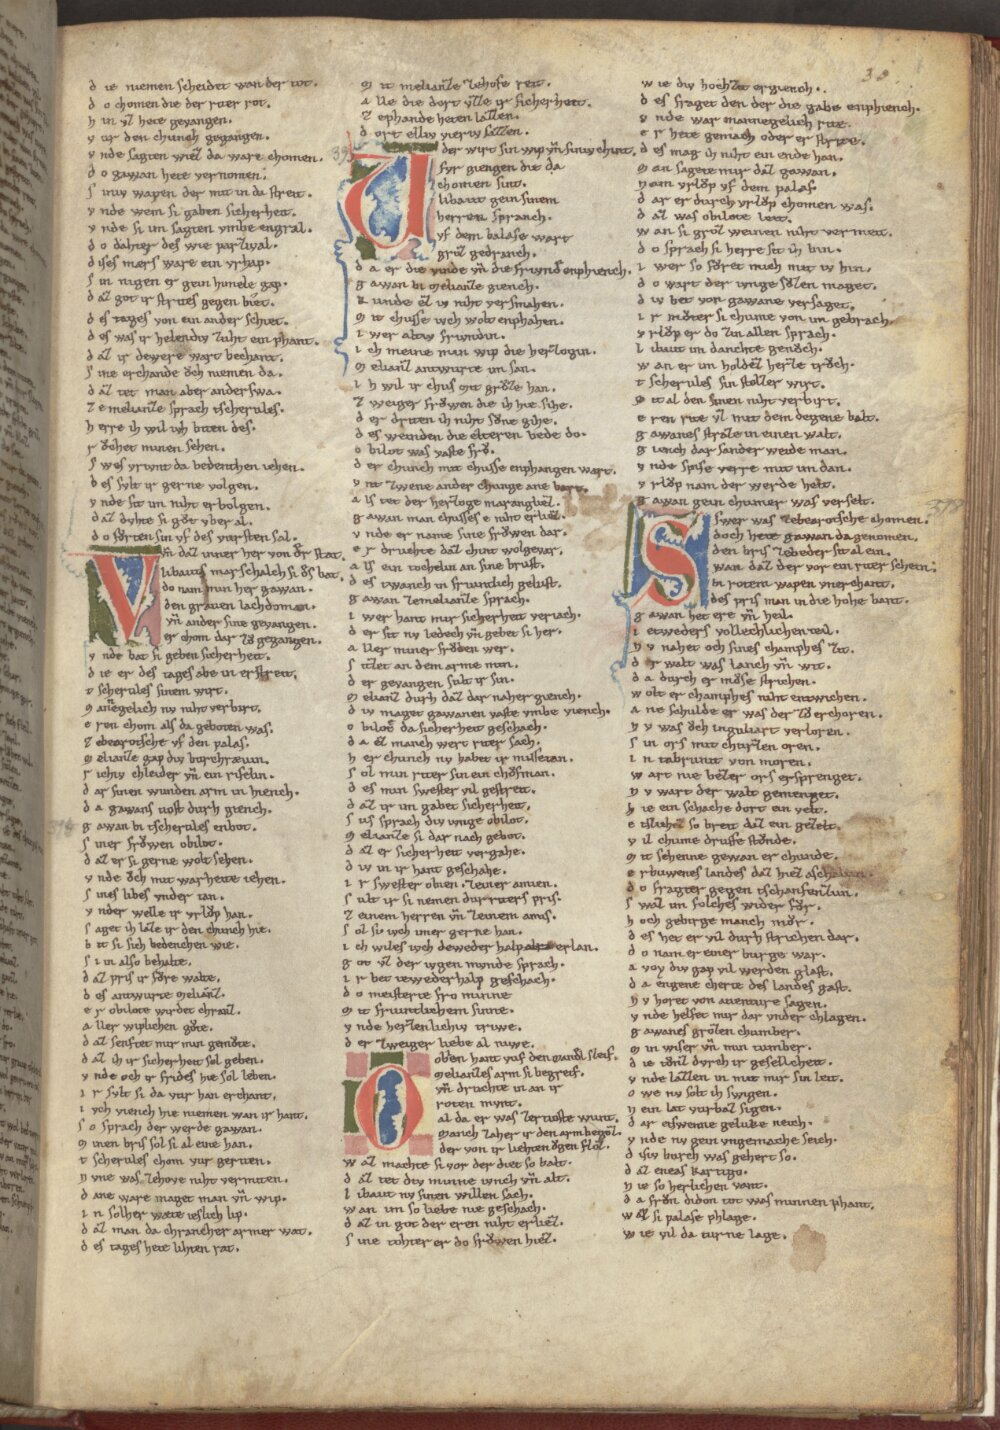 39
d ie niemen scheidet wan der tot.
d o chomen die der riter rot.
h in vz hete gevangen.
v ur den chunch gegangen.
v nde sagten wiez da ware chomen.
d o gawan hete vernomen.
s iniv wapen der mit in da streit.
v nde wem si gaben sicherheit.
v nde si im sagten vmbe engral.
d o dahter des wie parzival.
dises mærs ware ein vrhap.
s in nigen er gein himele gap.
d az got ir strites gegen biet.
d es tages von ein ander schiet.
d es was ir helendiv zuht ein phant.
d az ir dewere wart bechant.
s ine erchande och niemen da.
d az tet man aber anderswa.
z e melianze sprach tscherules.
h erre ih wil vch biten des.
r ochet minen sehen.
s wes vriunt da bedenthen iehen.
d es sylt ir gerne volgen.
v nde sit im niht erbolgen.
d az dvhte si got vber al.
d o forten sin vf des vursten sal.
V n daz inner her von der stat.
libauts marschalch si des bat.
do nam min her gawan.
den graven lachdoman.
vn ander sine gevangen.
er chom dar zo gegangen.
v nde bat si geben sicherheit.
d ie er des tages abe in erstreit.
t scherules sinem wirt.
m annegelich nv niht verbirt.
e ren chom als da geboten was.
z ebearotsche vf den palas.
m elianze gap div burchravin.
r ichiv chleider vn ein riselin.
d ar sinen wunden arm in hiench.
d a gawans tiost durh giench.
g awan bi tscherules enbot.
s iner frowen obilot.
d az er si gerne wolt sehen.
v nde och mit warheite iehen.
s ines libes vnder tan.
v nder welle ir vrlop han.
s aget ih laze ir den chunch hie.
b it si sich bedenchen wie.
s i in also behalte.
d az pris ir fore walte.
d es antwurte melianz.
e r obilote wirdet chranz.
a ller wiplichen gote.
d az senftet mir min gemote.
d az ih ir sicherheit sol geben.
v nde och ir frides hie sol leben.
i r sylt si da vur han erchant.
i vch viench hie niemen wan ir hant.
s o sprach der werde gawan.
m inen bris sol si al eine han.
t scherules chom vur geriten.
n vne was zehove niht vermiten.
d ane ware maget man vn wip.
i n solher wæte ieslich lip.
d az man da chrancher armer wat.
d es tages hete lihten rat.
m it melianze zehofe reit.
a lle die dort vzze ir sicherheit.
z ephande heten lazzen.
d ort elliv vieriv sazzen.
395
der wirt sin wip vn siniv chint.
fvr giengen die da
chomen sint.
libaut gein sinem
herren spranch.
vf dem balase wart
groz gedranch.
d a er die vinde vn die friund enphiench.
g awan bi melianze giench.
k unde ez iv niht versmahen.
m it chusse wch wolt enphahen.
i wer altiv friundin.
i ch meine min wip die herzogin.
m elianz antwurte im san.
i h wil ir chus mit groze han.
z weiger frowen die ih hie sihe.
d er driten ih niht sone gihe.
d es weinden die elteren bede do.
o bilot was vaste fro.
d er chunch mit chusse enphangen wart.
v nt zwene ander chunge ane bart.
a ls tet der herzoge marangliez.
g awan man chusses e niht erliez.
v nde er name sine frowen dar.
e r druchte daz chint wolgevar.
a ls ein tochelin an sine brust.
d es twanch in friuntlich gelust.
g awan zemelianze sprach.
i wer hant mir sicherheit veriach.
d er sit nv ledech vn gebet si her.
a ller miner froden wer.
s itzet an dem arme min.
d er gevangen sult ir sin.
m elianz durh daz dar naher giench.
d iv maget gawanen vaste vmbe viench.
o bilot da sicherheit geschach.
d a ez manch wert riter sach.
h er chunch nv habet ir missetan.
s ol min riter sin ein chofman.
d es min swester vil gestreit.
d az ir im gabet sicherheit.
s us sprach div ivnge obilot.
m elianze si dar nach gebot.
d az er sicherheit vergahe.
d iv in ir hant geschahe.
i r swester obien. zeiner amien.
s ult ir si nemen dur riters pris.
z einem herren vn zeinem amis.
s ol si wch imer gerne han.
i ch wiles wch deweder halp erlan.
g ot vz der ivgen munde sprach.
i r bet ietwederhalp geschach.
d o meisterte fro minne
m it friuntlichem sinne.
v nde herzenlichiv triwe.
d er zweiger liebe al niwe.
O oben hant vuf den mandl sleif.
melianzes arm si begreif.
vn druchte in an ir
roten munt.
al da er was zer tioste wunt.
manch zaher ir den arm begoz.
der von ir liehten ogen floz.
w az machte si vor der diet so balt.
d az tet div minne iunch vn alt.
l ibaut nv sinen willen sach.
w an im so liebe nie geschach.
d az in got der eren niht erliez.
s ine tohter er do frowen hiez.
w ie div hochzit ergiench.
d es fraget den der die gabe enphiench.
v nde war mannegelich rite.
e r hete gemach oder er strite.
d es mag ih niht ein ende han.
m an sagete mir daz gawan.
n am vrlop vf dem palas.
d ar er durch vrlop chomen was.
d az was obilote leit.
w an si groz weinen niht vermeit.
d o sprach si herre sit ih bin.
i wer so foret mich mit iv hin.
d o wart der ivnge sozen maget.
d iv bet von gawane versaget.
i r moter si chume von im gebrach
v rlop er do zin allen sprach.
l ibaut im danchte genoch.
w an er im holdez herze troch.
t scherules sin stolzer wirt.
m it al den sinen niht verbirt.
e ren rite vz mit dem degene balt.
g awanes straze in einen walt.
g iench dar sander weide man.
v nde spise verre mit im dan.
v rlop nam der werde helt.
g awan gein chumer was verselt.
398
S Swer was zebearotsche chomen.
doch hete gawan da genomen.
den bris zebeder sit al ein.
wan daz der vor ein riter schein.
bi rotem wapen vnerchant.
des pris man in die hohe bant.
g awan het ere vn heil.
i etweders vollechlichen teil.
n v nahet och sines champhes zit.
d er walt was lanch vn wit.
d a durch er mose strichen.
w olt er champhes niht entwichen.
a ne schulde er was der zo erchoren.
n v was och inguliart verloren.
s in ors mit churzen oren.
i n tabrunit von moren.
w art nie bezer ors ersprenget.
n v wart der walt gemenget.
h ie ein schache dort ein velt.
e tslichez so breit daz ein gezelt.
v il chume druffe stonde.
m it sehenne gewan er chunde.
e rbuwenes landes daz hiez aschalun.
d o fragter gegen tschanfenzun.
s waz im folches wider for.
h och gebirge manch mor.
d es het er vil durh strichen dar.
d o nam er einer burge war.
a voy div gap vil werden glast.
d a engene cherte des landes gast.
n v horet von aventure sagen.
v nde helfet mir dar vnder chlagen.
g awanes grozen chumber.
m in wiser vn min tumber.
d ie tonz dvrch ir gesellecheit.
v nde lazzen in mit mir sin leit.
o we nv solt ih swigen.
n ein lat vurbaz sigen.
d ar etswenne geluke neich.
v nde nv gein vngemache seich.
d isiv burch was gehert so.
d az eneas kartigo.
n ie so herlichen vant.
d a fron didon tot was minnen phant.
w az si palase phlage.
w ie vil da turne lage.